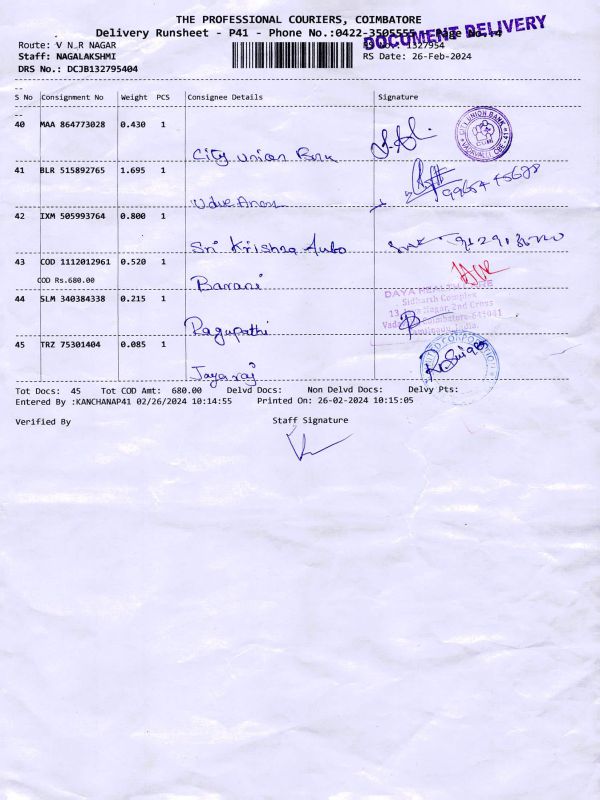 THE PROFESSIONAL COURIERS, COIMBATORE
Delivery Runsheet - P41 - Phone No.:0422-3505555 Page No.:4
DOCUMENT DELIVERY
Route: V N.R NAGAR RS No.: 1327954
Staff: NAGALAKSHMI RS Date: 26-Feb-2024
DRS No.: DCJB132795404
--
S No Consignment No Weight PCS Consignee Details Signature
--
40 MAA 864773028 0.430 1
City Union Bank
CITY UNION BANK
CUB
41 BLR 515892765 1.695 1
42 IXM 505993764 0.800 1
Sri Krishna Auto
43 COD 1112012961 0.520 1
COD Rs.680.00 Barani
DAYA HEALTH CARE
Sidharth Complex
Nagar, 2nd Cross
Coimbatore-641041
44 SLM 340384338 0.215 1
Ragupathi
45 TRZ 75301404 0.085 1
Jayaraj
Tot Docs: 45 Tot COD Amt: 680.00 Delvd Docs: Non Delvd Docs: Delvy Pts:
Entered By :KANCHANAP41 02/26/2024 10:14:55 Printed On: 26-02-2024 10:15:05
Verified By Staff Signature